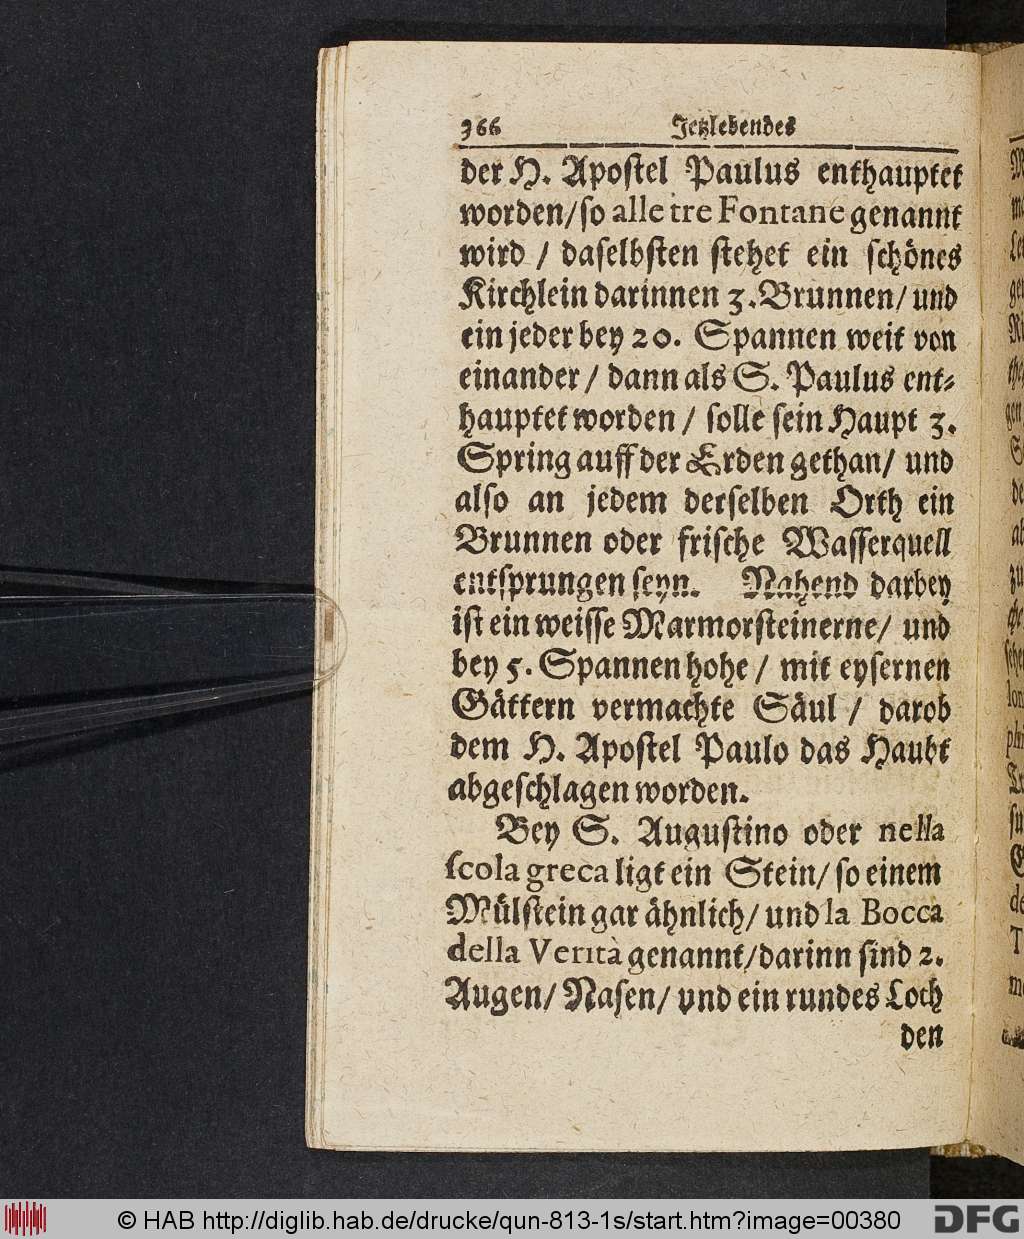 366 Jetzlebendes
der H. Apostel Paulus enthauptet
worden/so alle tre Fontane genannt
wird / daselbsten stehet ein schönes
Kirchlein darinnen 3. Brunnen/ und
ein jeder bey 20. Spannen weit von
einander / dann als S. Paulus ent-
hauptet worden / solle sein Haupt 3.
Spring auff der Erden gethan/ und
also an jedem derselben Orth ein
Brunnen oder frische Wasserquell
entsprungen seyn. Nahend darbey
ist ein weisse Marmorsteinerne/ und
bey 5. Spannen hohe / mit eysernen
Gättern vermachte Säul / darob
dem H. Apostel Paulo das Haubt
abgeschlagen worden.
Bey S. Augustino oder nella
scola greca ligt ein Stein/ so einem
Mülstein gar ähnlich/ und la Bocca
della Verità genannt/darinn sind 2.
Augen/ Nasen/ vnd ein rundes Loch
den
© HAB http://diglib.hab.de/drucke/qun-813-1s/start.htm?image=00380 DFG